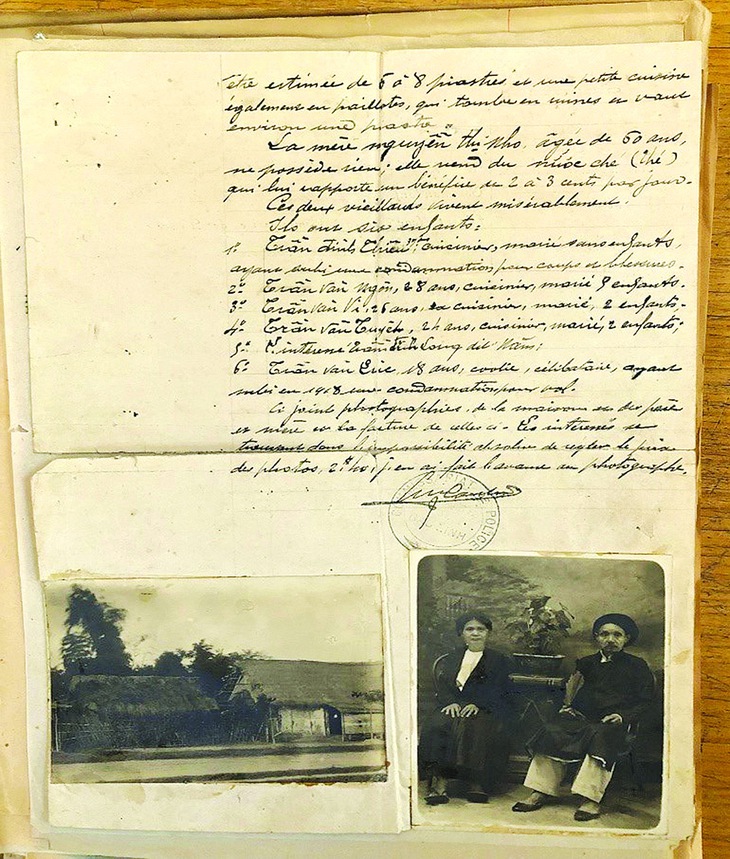 être estimée de 6 à 8 piastres et une petite cuisine
également en paillotes, qui tombe en ruines et vaut
environ une piastre.
La mère Nguyễn thị Nho, âgée de 60 ans,
ne possède rien; elle vend du nước ché (thé)
qui lui rapporte un bénéfice de 2 à 3 cents par jour.
Ces deux vieillards vivent misérablement.
Ils ont six enfants:
1º Trần đình cuisinier, marié sans enfants,
ayant subi une condamnation pour coups et blessures.
2º Trần văn Ngôn, 28 ans, cuisinier, marié enfants.
3º Trần văn Vi, 26 ans, cuisinier, marié, 2 enfants.
4º Trần văn Tuyết, 24 ans, cuisinier, marié, 2 enfants;
5º L'intéressé Trần Long dit Năm;
6º Trần văn 18 ans, coolie, célibataire, ayant
subi en 1918 une condamnation pour vol.
Ci joint photographies, de la maison et des père
et mère et la facture de celles ci. Les intéressés se
trouvant dans l'impossibilité absolue de régler le prix
des photos, j'en ai fait l'avance au photographe.
POLICE